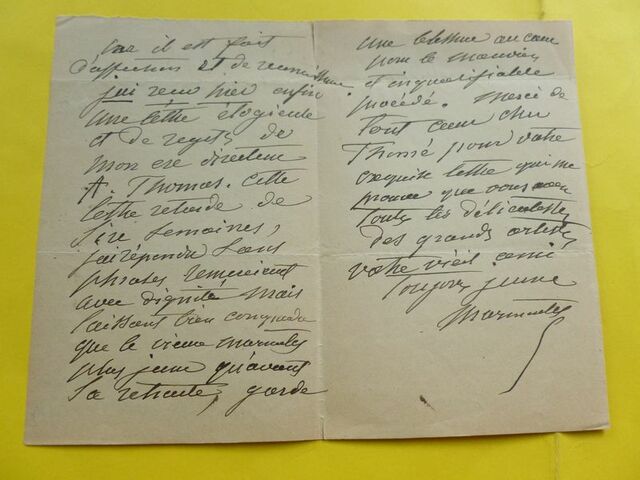 car il est fait
d'affection et de reconnaissance.
j'ai reçu hier enfin
une lettre élogieuse
et de regrets de
mon exe directeur
A. Thomas. cette
lettre retardée de
six semaines,
j'ai répondu sans
phrases remerciant
avec dignité mais
laissant bien comprendre
que le vieux Marmontel
plus jeune qu'avant
sa retraite, garde
une blessure au cœur
pour le mauvais
et inqualifiable
procédé. Merci de
tout cœur cher
Thomé pour votre
exquise lettre qui me
prouve que vous avez
toutes les délicatesses
des grands artistes,
votre vieil ami
toujours jeune
Marmontel